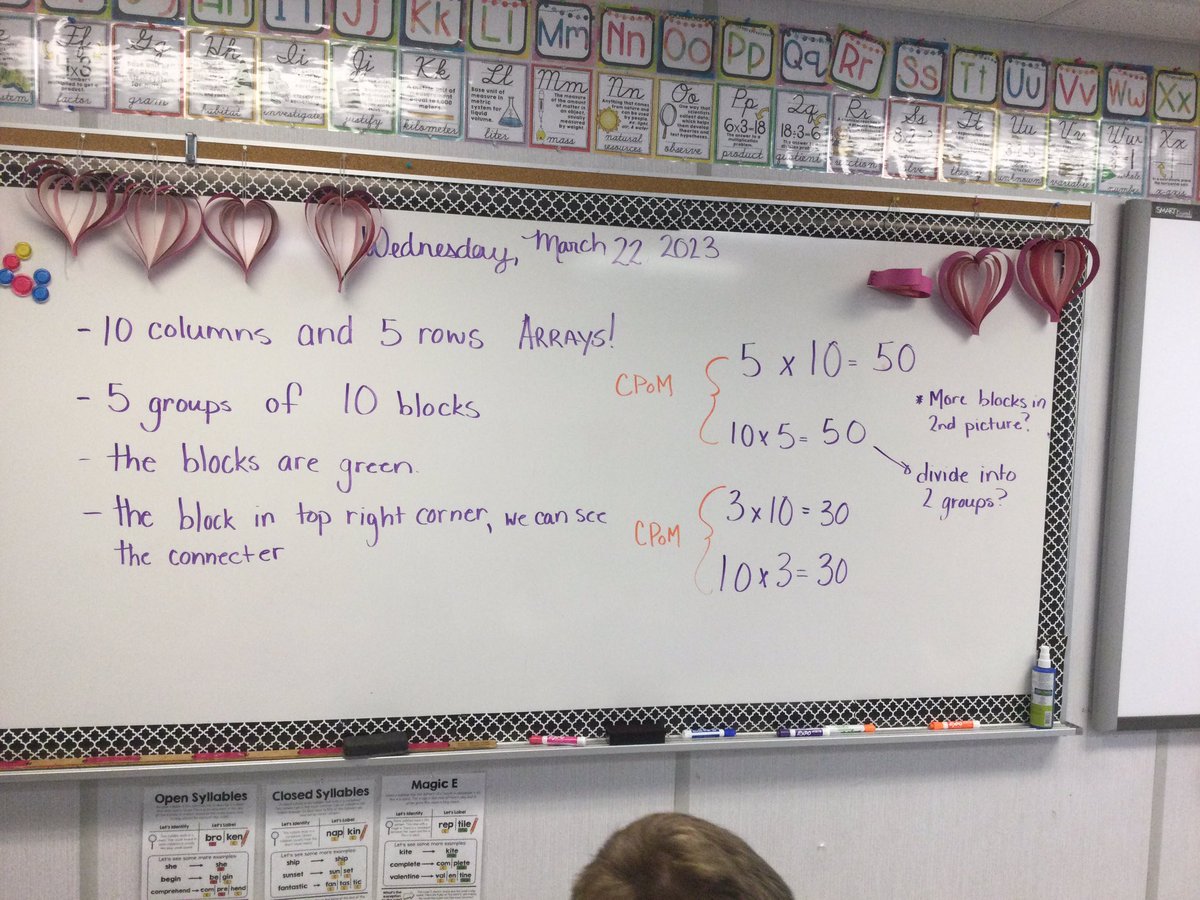 Ii Jj Kk Ll Mm Nn Oo Pp Qq Rr Ss Tt Uu Vv Ww Xx
Ff
factor
Gg
gram
Hh
habitat
Ii
investigate
Jj
justify
Kk
kilometer
Ll
Base unit of
measure in
metric
system for
liquid
volume.
liter
Mm
The measure
of the
amount of
matter in
an object,
usually
measured
by weight
mass
Nn
natural
resources
Oo
observe
Pp
6x3=18
product
Qq
18÷3=6
quotient
Rr
Ss
Tt
Uu
unknown
Vv
variable
Ww
number
Xx
x-axis
SMART
Wednesday, March 22 2023
- 10 columns and 5 rows ARRAYS!
- 5 groups of 10 blocks
- the blocks are green.
- the block in top right corner, we can see
the connecter
CPoM
5 x 10 = 50
10 x 5 = 50
* More blocks in
2nd picture?
divide into
2 groups?
CPoM
3 x 10 = 30
10 x 3 = 30
EXPO
Open Syllables
Let's Identify Let's Label
bro ken
Let's see some more examples
she → she
begin → be gin
comprehend → com pre hend
Closed Syllables
Let's Identify Let's Label
nap kin
Let's see some more examples
ship → ship
sunset → sun set
fantastic → fan tas tic
Magic E
Let's Identify Let's Label
rep tile
Let's see some more examples
kite → kite
complete → com plete
valentine → val en tine
What's the